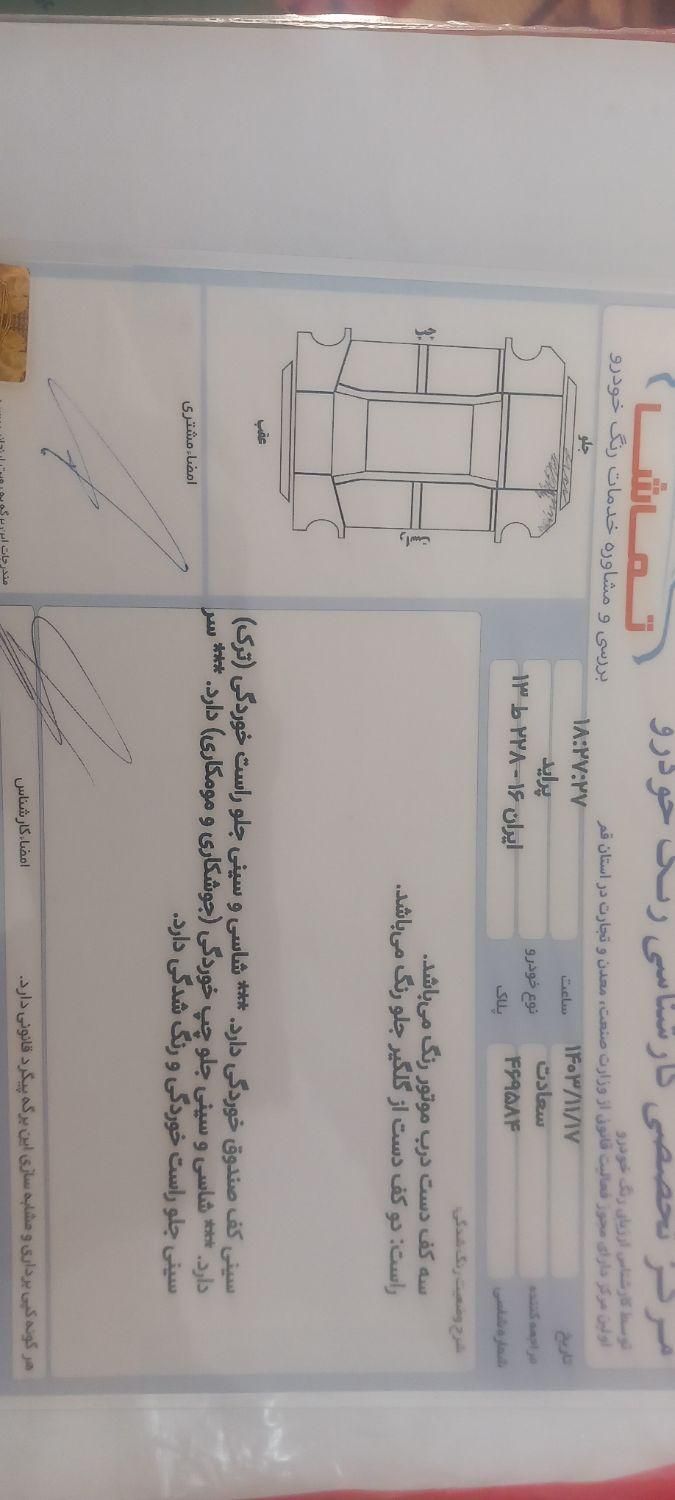 مرکز تخصصی کارشناسی رنگ خودرو
تماشا
توسط کارشناس ارزیابی رنگ خودرو
اولین مرکز دارای مجوز فعالیت قانونی از وزارت صنعت، معدن و تجارت در استان قم
بررسی و مشاوره خدمات رنگ خودرو
تاریخ ۱۴۰۳/۱۱/۱۷ ساعت ۱۸:۲۷:۲۷
مراجعه کننده سعادت نوع خودرو پراید
شماره شاسی ۴۶۹۵۸۴ پلاک ایران ۱۶ - ۲۲۸ ط ۱۳
شرح وضعیت رنگ شدگی:
سه کف دست درب موتور رنگ می‌باشد.
راست: دو کف دست از گلگیر جلو رنگ می‌باشد.
سینی کف صندوق خوردگی دارد. *** شاسی و سینی جلو راست خوردگی (ترک)
دارد. *** شاسی و سینی جلو چپ خوردگی (جوشکاری و مومکاری) دارد. *** سر
سینی جلو راست خوردگی و رنگ شدگی دارد.
جلو
چپ
راست
عقب
امضاء مشتری
امضاء کارشناس
هر گونه کپی برداری و مشابه سازی این برگه پیگرد قانونی دارد.